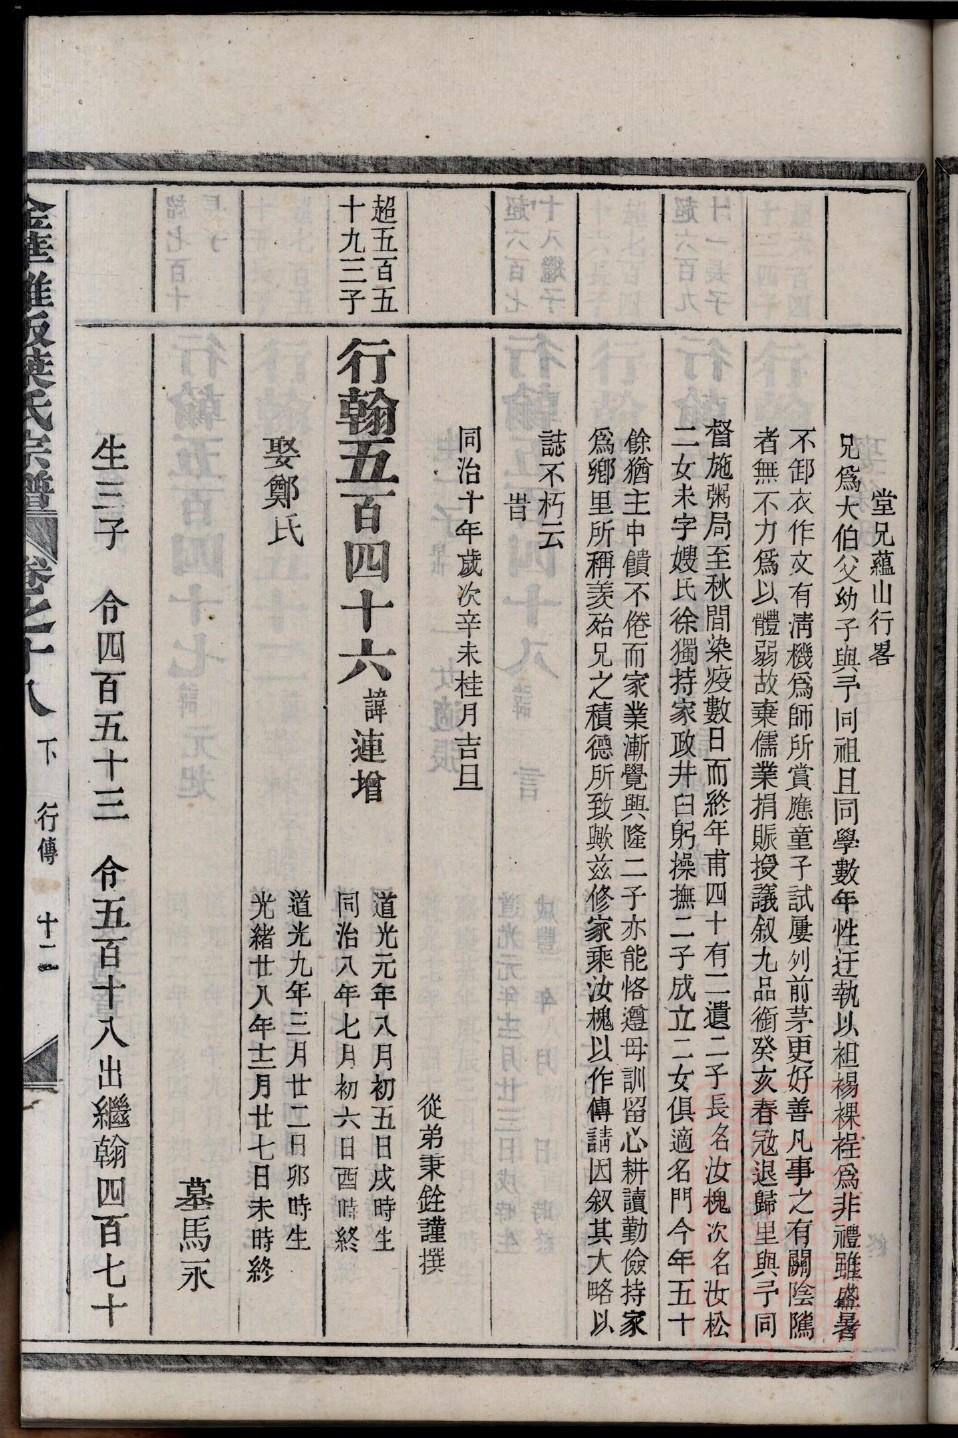 堂兄蘊山行畧
兄爲大伯父幼子與予同祖且同學數年性迂執以袒裼裸裎爲非禮雖盛暑
不卸衣作文有淸機爲師所賞應童子試屢列前茅更好善凡事之有關陰隲
者無不力爲以體弱故棄儒業捐賑授議叙九品銜癸亥春冦退歸里與予同
督施粥局至秋間染疫數日而終年甫四十有二遺二子長名汝槐次名汝松
二女未字嫂氏徐獨持家政井臼躬操撫二子成立二女俱適名門今年五十
餘猶主中饋不倦而家業漸覺興隆二子亦能恪遵母訓留心耕讀勤儉持家
爲鄉里所稱羨殆兄之積德所致歟玆修家乘汝槐以作傳請因叙其大略以
誌不朽云
旹
同治十年歲次辛未桂月吉旦
從弟秉銓謹撰
超五百五
十九三子
行翰五百四十六 諱連增
道光元年八月初五日戌時生
同治八年七月初六日酉時終
娶鄭氏
道光九年三月廿二日卯時生
光緒廿八年十二月廿七日未時終
墓馬永
生三子 令四百五十三 令五百十八出繼翰四百七十
金華雅畈葉氏宗譜 卷之十八 下 行傳 十二